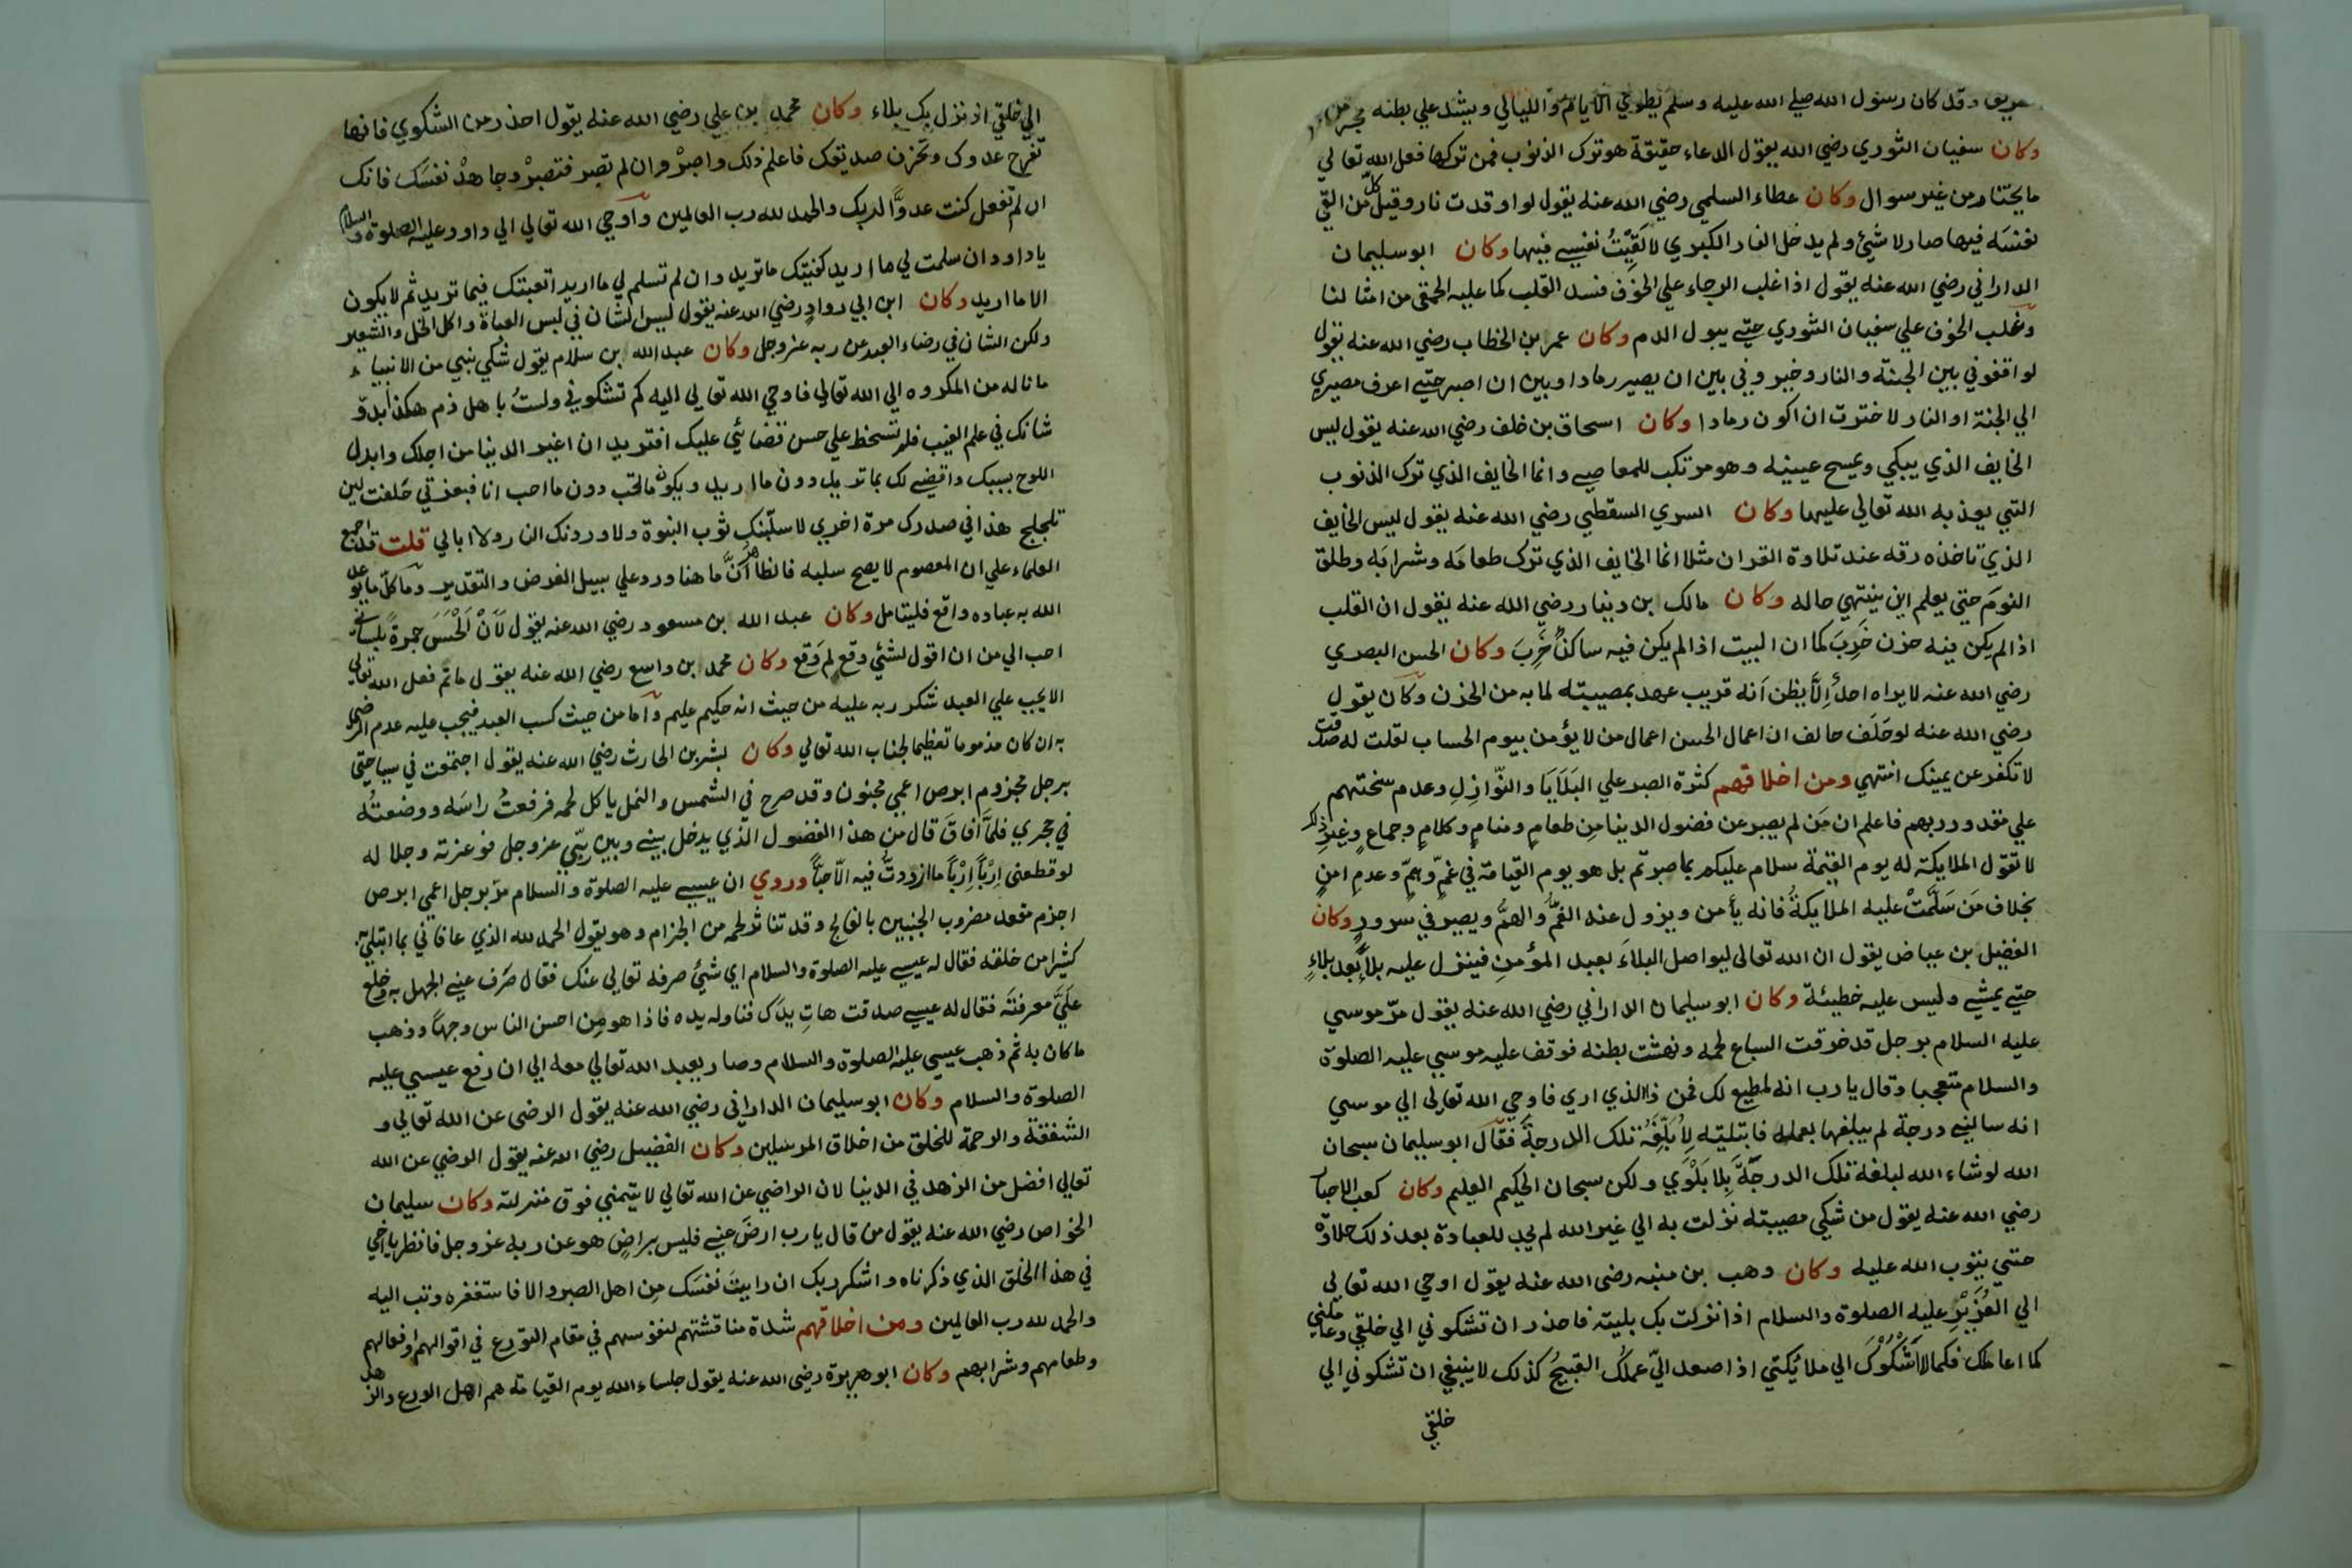 وقد كان رسول الله صلي الله عليه وسلم يطوي الايام والليالي ويشد علي بطنه
وكان سفيان الثوري رضي الله يقول الدعاء حقيقة هو ترك الذنوب فمن تركها فعل الله تعالي
ما يختار من غير سوال وكان عطاء السلمي رضي الله عنه يقول لو اوقدت نار وقيل كل من القي
نفسه فيها صار لا شيئ ولم يدخل النار الكبري لالقيت نفسي فيها وكان ابو سليمان
الداراني رضي الله عنه يقول اذا غلب الرجاء علي الخوف فسد القلب كما عليه الحمقي من امثالنا
وغلب الخوف علي سفيان الثوري حتي يبول الدم وكان عمر بن الخطاب رضي الله عنه يقول
لو اقفوني بين الجنة والنار وخيروني بين ان يصير رمادا وبين ان اصبر حتي اعرف مصيري
الي الجنة او النار لاخترت ان اكون رمادا وكان اسحاق بن خلف رضي الله عنه يقول ليس
الخايف الذي يبكي ويمسح عينيه وهو مرتكب للمعاصي وانما الخايف الذي ترك الذنوب
التي يعذبه الله تعالي عليها وكان السري السقطي رضي الله عنه يقول ليس الخايف
الذي تاخذه رقه عند تلاوة القران مثلا انما الخايف الذي ترك طعامَه وشرابَه وطلق
النومَ حتي يعلم اين ينتهي حاله وكان مالك بن دينار رضي الله عنه يقول ان القلب
اذا لم يكن فيه حزن خَرِبَ كما ان البيت اذا لم يكن فيه ساكنٌ خَرِبَ وكان الحسن البصري
رضي الله عنه لا يراه احدٌ اِلَّا يظن اَنه قريب عهد بمصيبته لما به من الحزن وكان يقول
رضي الله عنه لو حَلَف حالف ان اعمال الحسن اعمال من لا يؤمن بيوم الحساب لقلت له صدقت
لا تكفر عن يمينك انتهي ومن اخلاقهم كثرة الصبر علي البَلَايَا والنّوازِلِ وعدم سختهم
علي مقدور ربهم فاعلم ان مَن لم يصبر عن فضول الدنيا مِن طعامٍ ومنامٍ وكلامٍ وجماعٍ وغيرِ ذلك
لا تقول الملايكة له يوم القيمة سلام عليكم بما صبرتم بل هو يوم القيامة في غمٍّ وهمٍّ وعدمِ امنٍ
بخلاف مَن سَلَّمَتْ عليه الملايكةُ فانه يأمن ويزول عنه الغمُّ والهمُّ ويصير في سرورٍ وكان
الفضيل بن عياض يقول ان الله تعالى ليواصل البلاءَ بعبد المؤمنِ فينزل عليه بلاءً بعد بلاءٍ
حتي يمشي وليس عليه خطيئة وكان ابو سليمان الداراني رضي الله عنه يقول مرّ موسي
عليه السلام برجل قد خرقت السباع لحمه ونهشت بطنه فوقف عليه موسي عليه الصلوة
والسلام متعجبا وقال يا رب انه لمطيع لك فمن ذا الذي اري فاوحي الله تعالى الي موسي
انه سالني درجة لم يبلغها بعمله فابتليته لِاُبَلِّغَهُ تلك الدرجةَ فقال ابو سليمان سبحان
الله لو شاء الله لبلغه تلك الدرجةَ بِلا بَلْوَي ولكن سبحان الحكيم العليم وكان كعب الاحبار
رضي الله عنه يقول من شكي مصيبته نزلت به الي غير الله لم يجد للعبادة بعد ذلك حلاوة
حتي يتوب الله عليه وكان وهب بن منبه رضي الله عنه يقول اوحي الله تعالي
الي العُزَيْرِ عليه الصلوة والسلام اذا نزلت بك بلية فاحذر ان تشكوني الي خلقي وعاملني
كما اعاملك فكما لا اَشْكُوْكَ الي ملائكتي اذا صعد اليّ عملك القبيحُ كذلك لا ينبغي ان تشكوني الي
خلقي
الي خلقي اذ نزل بك بلاء وكان محمد بن علي رضي الله عنه يقول احذر من الشكوي فانها
تفرح عدوك وتحزن صديقك فاعلم ذلك واصبرْ وان لم تصبر فتصبرْ وجاهدْ نفسَك فانك
ان لم تفعل كنت عدوًّا لربك والحمد لله رب العالمين واوحي الله تعالي الي داود عليه الصلوة والسلام
يا داود ان سلمت لي ما اريد كفيتك ما تريد وان لم تسلم لي ما اريد اتعبتك فيما تريد ثم لا يكون
الا ما اريد وكان ابن ابي روادٍ رضي الله عنه يقول ليس الشان في لبس العباة واكل الخل والشعير
ولكن الشان في رضاء العبد عن ربه عز وجل وكان عبد الله بن سلام يقول شكي نبي من الانبياء
ما ناله من المكروه الي الله تعالي فاوحي الله تعالى اليه كم تشكوني ولستُ باهل ذم هكذا بدؤ
شانك في علم الغيب فلم تسخط علي حسن قضائي عليك افتريد ان اغير الدنيا من اجلك وابدل
اللوح بسببك واقضي لك بما تريد دون ما اريد ويكون ما تحب دون ما احب انا فبعزتي حَلفت لين
تلجلج هذا في صدرك مرة اخري لاسلبنك ثوب النبوة ولاوردنك النار ولا ابالي قلت قد اجمع
العلماء علي ان المعصوم لا يصح سلبه فالظاهر اَنَّ ما هنا ورد علي سبيل الفرض والتقدير وما كلّ ما يوعد
الله به عباده واقع فليتامل وكان عبد الله بن مسعود رضي الله عنه يقول لَاَنْ اَلْحَسَ جمرةً بلساني
احب الي من ان اقول لشئي وقع لِمَ وَقع وكان محمد بن واسع رضي الله عنه يقول ما ثم فعل الله تعالي
الا يجب علي العبد شكر ربه عليه من حيث انه حكيم عليم واما من حيث كسب العبد فيجب عليه عدم الرضي
به ان كان مذموما تعظيما لجناب الله تعالي وكان بشر بن الحارث رضي الله عنه يقول اجتمعت في سياحتي
برجل مجزوم ابرص اعمي مجنون وقد صرح في الشمس والنمل ياكل لحمه فرفعتُ راسَه ووضعتُه
في حجري فلمَّا اَفَاقَ قال من هذا الفضول الذي يدخل بيني وبين ربّي عز وجل فوعزته وجلاله
لو قطعني اِرْبًا اِرْبًا ما ازددتُ فيه الّا حبًّا وروي ان عيسي عليه الصلوة والسلام مرّ برجل اعمي ابرص
اجذم مقعد مضروب الجنبين بالفالج وقد تناثر لحمه من الجزام وهو يقول الحمد لله الذي عافاني بما ابتلي به
كثيرا من خلقه فقال له عيسي عليه الصلوة والسلام اي شئي صرفه تعالي عنك فقال صَرَف عني الجهل به وخلع
عليَّ معرفتَه فقال له عيسي صدقت هاتِ يدَك فناوله يده فاذا هو مِن احسن الناس وجهًا وذهب
ما كان به ثم ذهب عيسي عليه الصلوة والسلام وصار يعبد الله تعالي معه الي ان رفع عيسي عليه
الصلوة والسلام وكان ابو سليمان الداراني رضي الله عنه يقول الرضي عن الله تعالي و
الشفقة والرحمة للخلق من اخلاق المرسلين وكان الفضيل رضي الله عنه يقول الرضي عن الله
تعالي افضل من الزهد في الدنيا لان الراضي عن الله تعالي لا يتمني فوق منزلته وكان سليمان
الخواص رضي الله عنه يقول من قال يا رب ارضَ عني فليس براضٍ هو عن ربه عز وجل فانظر يا اخي
في هذا الخلق الذي ذكرناه واشكر ربك ان رايتَ نفسَك مِن اهل الصبر والا فاستغفره وتب اليه
والحمد لله رب العالمين ومن اخلاقهم شدة مناقشتهم لنفوسهم في مقام التورع في اقوالهم وافعالهم
وطعامهم وشرابهم وكان ابو هريرة رضي الله عنه يقول جلساء الله يوم القيامة هم اهل الورع والزهد